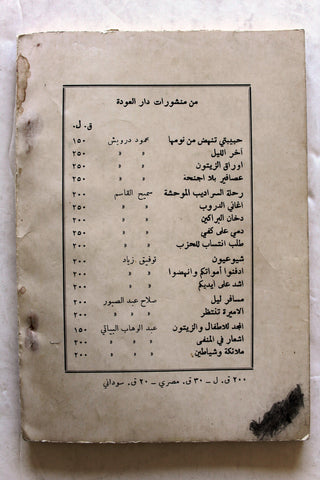 من منشورات دار العودة
ق. ل.
حبيبتي تنهض من نومها محمود درويش ١٥٠
آخر الليل » » ٢٥٠
اوراق الزيتون » » ٢٥٠
عصافير بلا اجنحة » » ٢٥٠
رحلة السراديب الموحشة سميح القاسم ٢٠٠
اغاني الدروب » » ٢٥٠
دخان البراكين » » ٢٠٠
دمي على كفي » » ٢٥٠
طلب انتساب للحزب » » ٢٠٠
شيوعيون توفيق زياد ٢٠٠
ادفنوا أمواتكم وانهضوا » » ٢٠٠
اشد على أيديكم » » ٢٠٠
مسافر ليل صلاح عبد الصبور ٢٠٠
الاميرة تنتظر » » ٢٠٠
المجد للاطفال والزيتون عبد الوهاب البياتي ١٥٠
اشعار في المنفى » » ٢٠٠
ملائكة وشياطين » » ٢٠٠
٢٠٠ ق. ل - ٣٠ ق. مصري - ٢٠ ق. سوداني